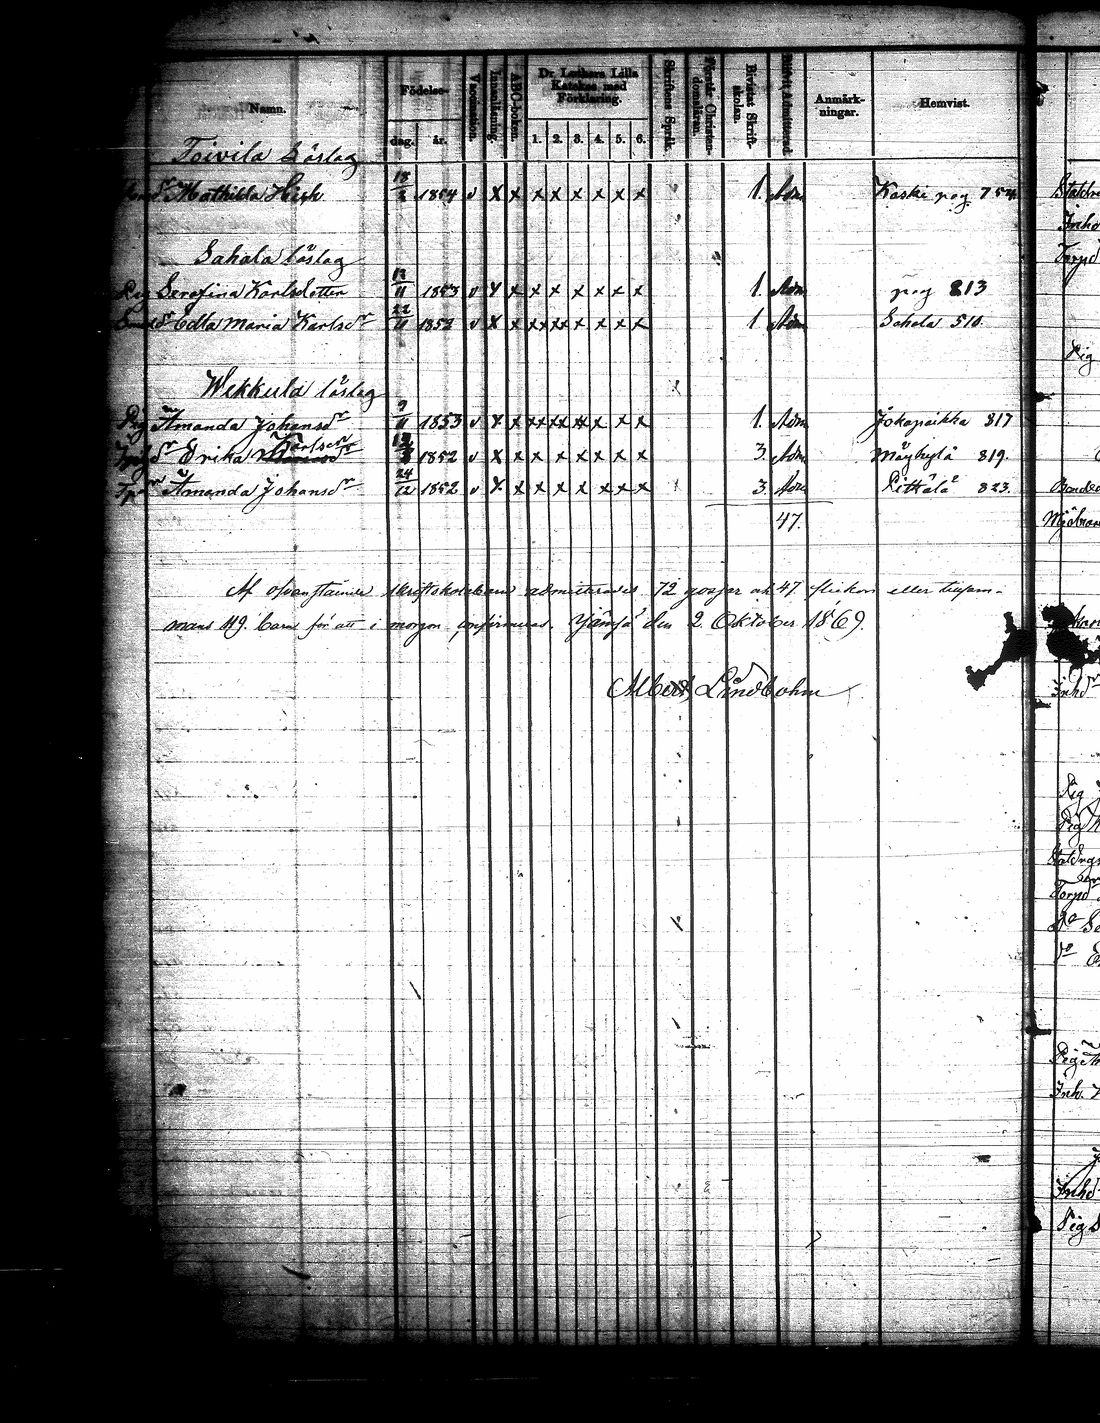 Namn. Födelse- dag. år. Vaccination. Innanläsning. ABC-boken. Dr. Luthers Lilla Katekes med Förklaring. 1. 2. 3. 4. 5. 6. Skriftens Språk. Förstår Christendomsläran. Bivistat Skriftskolan. Blifvit Admitterad. Anmärkningar. Hemvist.
Toivila läslag
Mathilda Høgk 18 1854 v x x x x x x x x 1. Adm Kaski 754
Sahala läslag
Pig Serafina Karlsdotter 12/11 1853 v x x x x x x x x 1. Adm pag 813
Edla Maria Karlsdr 22/11 1852 v x x xx xx x x x x 1 Adm Sahala 510.
Wekkula läslag
Pig Amanda Johansdr 9/11 1853 v x x xx xx xx x x x 1. Adm Jokapaikka 817
Erika Karlsdr 1852 v x x x x x x x x 3. Adm 819.
Amanda Johansdr 24/12 1852 v x x x x x x x x 3. Adm Pittkälä 823.
47.
Af ofvanstående skriftskolebarn admitterades 72 gossar och 47 flickor eller tillsam-
mans 119 barn för att i morgon confirmeras. Jämsä den 2 Oktober 1869.
Albert Lindbohm
Torpd
Pig
Inhd
Pig
Torpd
Inh.
Inhd
Pig